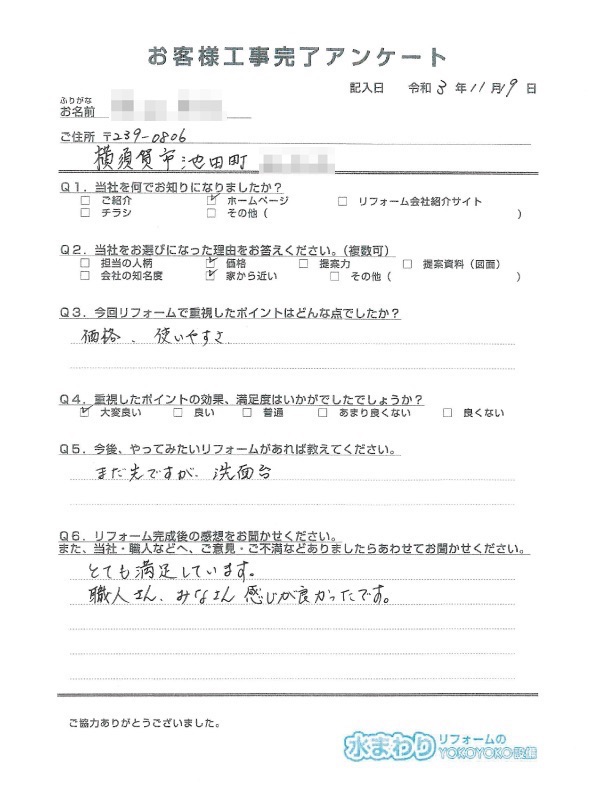 お客様工事完了アンケート
記入日 令和 3 年 11 月 19 日
ふりがな
お名前
ご住所 〒239-0806
横須賀市池田町
Q1. 当社を何でお知りになりましたか?
□ ご紹介 ☑ ホームページ □ リフォーム会社紹介サイト
□ チラシ □ その他 ( )
Q2. 当社をお選びになった理由をお答えください。(複数可)
□ 担当の人柄 ☑ 価格 □ 提案力 □ 提案資料(図面)
□ 会社の知名度 ☑ 家から近い □ その他 ( )
Q3. 今回リフォームで重視したポイントはどんな点でしたか?
価格、使いやすさ
Q4. 重視したポイントの効果、満足度はいかがでしたでしょうか?
☑ 大変良い □ 良い □ 普通 □ あまり良くない □ 良くない
Q5. 今後、やってみたいリフォームがあれば教えてください。
まだ先ですが、洗面台
Q6. リフォーム完成後の感想をお聞かせください。
また、当社・職人などへ、ご意見・ご不満などありましたらあわせてお聞かせください。
とても満足しています。
職人さん、みなさん感じが良かったです。
ご協力ありがとうございました。
水まわり リフォームの
YOKOYOKO設備